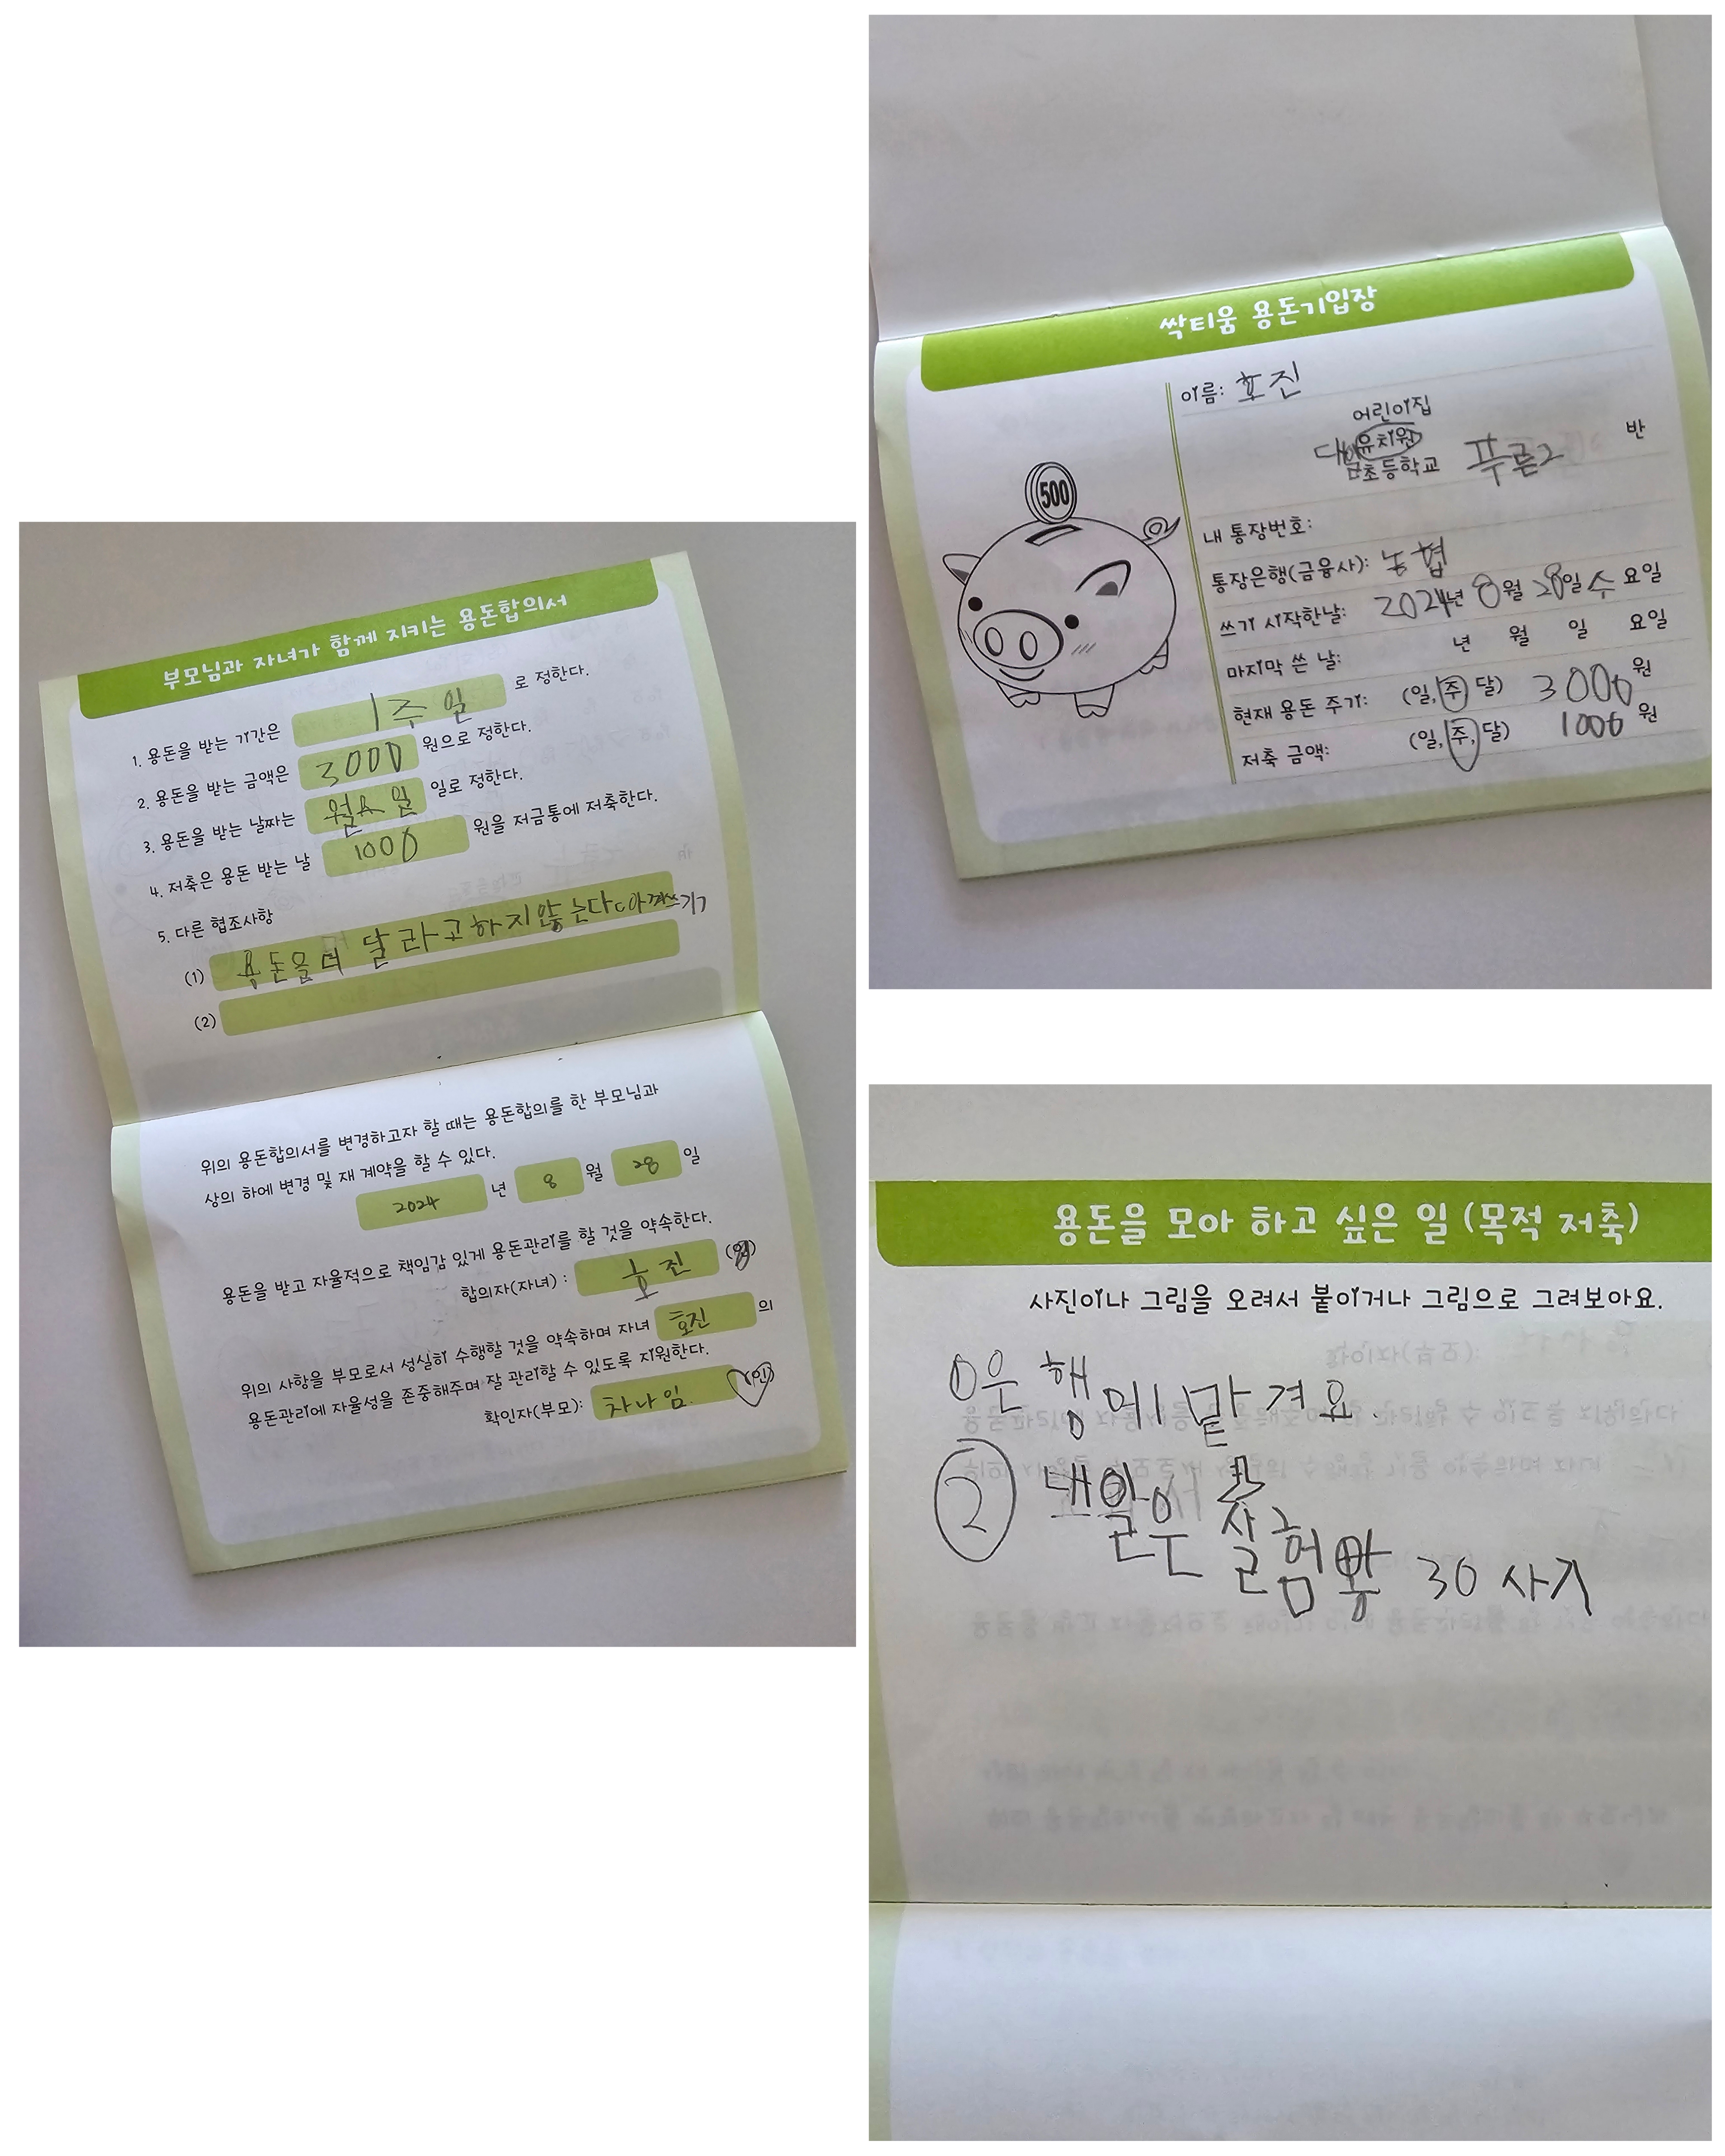 부모님과 자녀가 함께 지키는 용돈합의서
1. 용돈을 받는 기간은 1주일 로 정한다.
2. 용돈을 받는 금액은 3000 원으로 정한다.
3. 용돈을 받는 날짜는 월요일 일로 정한다.
4. 저축은 용돈 받는 날 1000 원을 저금통에 저축한다.
5. 다른 협조사항
(1) 용돈을 더 달라고하지않는다 아껴쓰기
(2)
위의 용돈합의서를 변경하고자 할 때는 용돈합의를 한 부모님과
상의 하에 변경 및 재 계약을 할 수 있다.
2024 년 8 월 28 일
용돈을 받고 자율적으로 책임감 있게 용돈관리를 할 것을 약속한다.
합의자(자녀) : 효진 (인)
위의 사항을 부모로서 성실히 수행할 것을 약속하며 자녀 효진 의
용돈관리에 자율성을 존중해주며 잘 관리할 수 있도록 지원한다.
확인자(부모): 차나임 (인)
싹티움 용돈기입장
500
이름: 효진
어린이집
유치원
초등학교 푸른2 반
내 통장번호:
통장은행(금융사): 농협
쓰기 시작한날: 2024년 8월 28일 수 요일
마지막 쓴 날: 년 월 일 요일
현재 용돈 주기: (일, 주, 달) 3000원
저축 금액: (일, 주, 달) 1000 원
용돈을 모아 하고 싶은 일 (목적 저축)
사진이나 그림을 오려서 붙이거나 그림으로 그려보아요.
은행에 맡겨요.
② 내일은 실험왕 30 사기